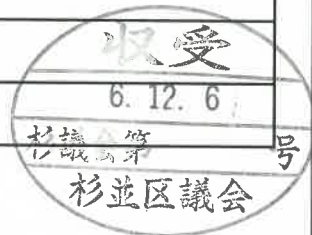 収受
6.12.6
杉議会第 号
杉並区議会